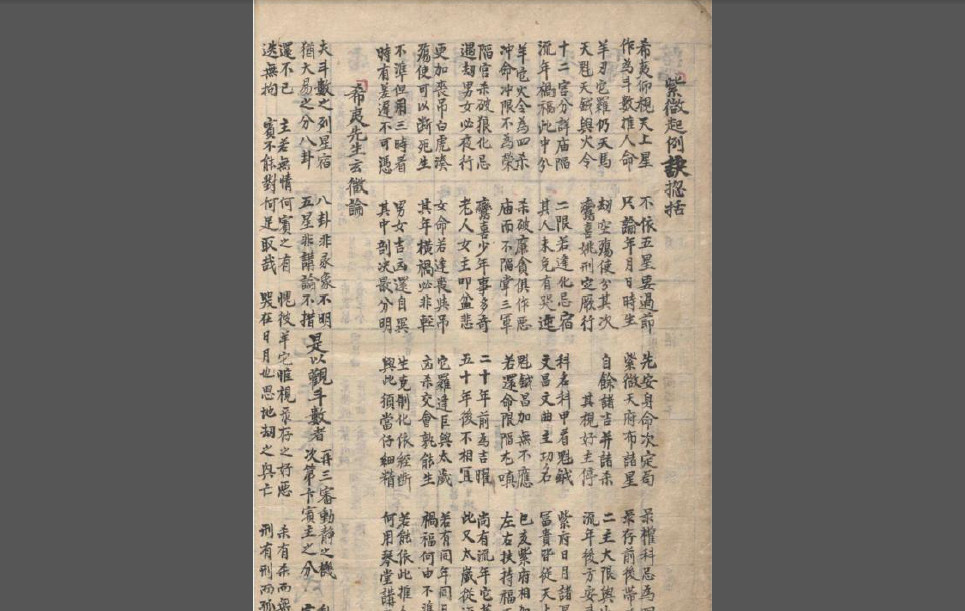 紫微起例訣捴括
希夷仰視天上星 不依五星要過節 先安身命次定局 录權科忌為
作為斗數推人命 只論年月日時生 紫微天府布諸星 录存前後帶
羊刃它羅仍天馬 刼空殤使分其次 自餘諸吉并諸杀 二主大限與
天魁天鉞與火令 鸞喜姚刑定厥行 其視好主停 流年後方安
十二宮分詳庙陥 二限若逢化忌宿 科名科甲看魁鉞 紫府日月諸
流年禍福此中分 其人未免有哭迍 文昌文曲主功名 冨貴皆從天
羊它火令為四杀 杀破廉貪俱作悪 魁鉞昌加無不應 巳亥紫府相
冲命冲限不為榮 庙而不陥掌三軍 若還命限陥尤嗔 左右扶持福
陥宮杀破狼化忌 鸞喜少年事多奇 二十年前為吉曜 尚有流年它
遇刼男女必夜行 老人女主叩盆悲 五十年後不相宜 此又太歲從
更加喪吊白虎湊 女命若逢喪與吊 它羅逢巨與太歲 若有同年同
殤使可以断死生 其年横禍必非輕 凶杀交會孰能生 禍福何由不
不準但用三時看 男女吉凶還自異 生克制化依經断 若能依此推
時有差遅不可憑 其中剖决最分明 與此須當仔細精 何用琴堂講
希夷先生云微論
夫斗數之列星宿 八卦非彖象不明 是以觀斗數者 再三審動静之機
猶大易之分八卦 五星非講論不措 次第卞賓主之分
還不已 主若無情何賓之有 愰彼羊它惟視录存之好悪 杀有杀而
迭無拘 賓不能對何足取哉 哭在日月也思地刼之與亡 刑有刑而孤